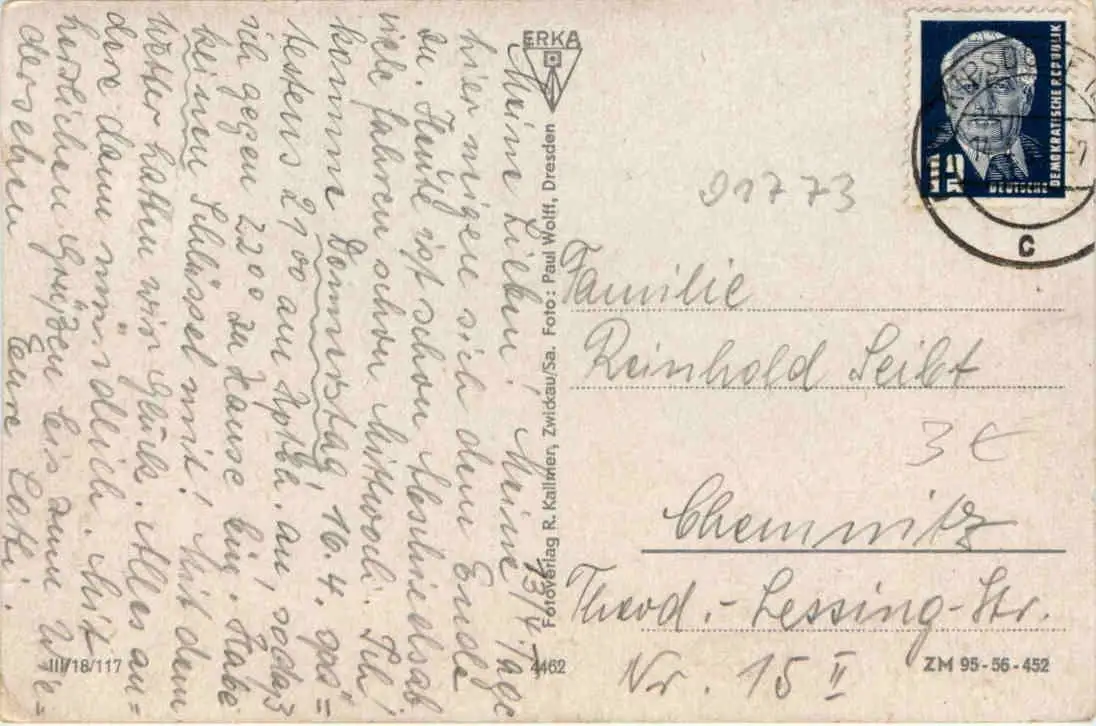 13/4.
Meine Lieben! Meine Tage
hier neigen sich dem Ende
zu. Heute ist schon Abschiedsab
viele fahren schon Mittwoch. Ich
komme Donnerstag, 16.4. spä=
testens 21oo am Hptbh. an, sodaß
ich gegen 22oo zu Hause bin. Habe
keinen Schlüssel mit! Mit dem
Wetter hatten wir Glück. Alles an=
dere dann mündlich. Mit
herzlichen Grüßen bis zum Wie=
dersehen Eure Lotti.
ERKA
Fotoverlag R. Kallmer, Zwickau/Sa. Foto: Paul Wolff, Dresden
DEUTSCHE
DEMOKRATISCHE REPUBLIK
12
C
91773
Familie
Reinhold Seibt
3 €
Chemnitz
Theod.-Lessing-Str.
Nr. 15 II
III/18/117
4462
ZM 95-56-452